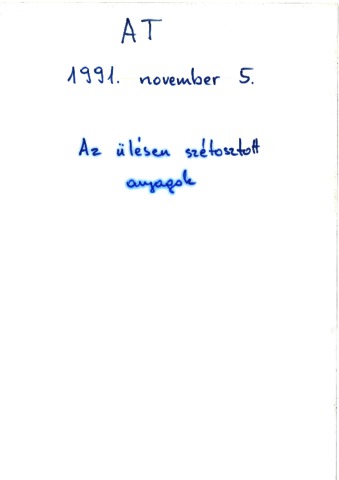 AT
1991. november 5.
Az ülésen szétosztott
anyagok